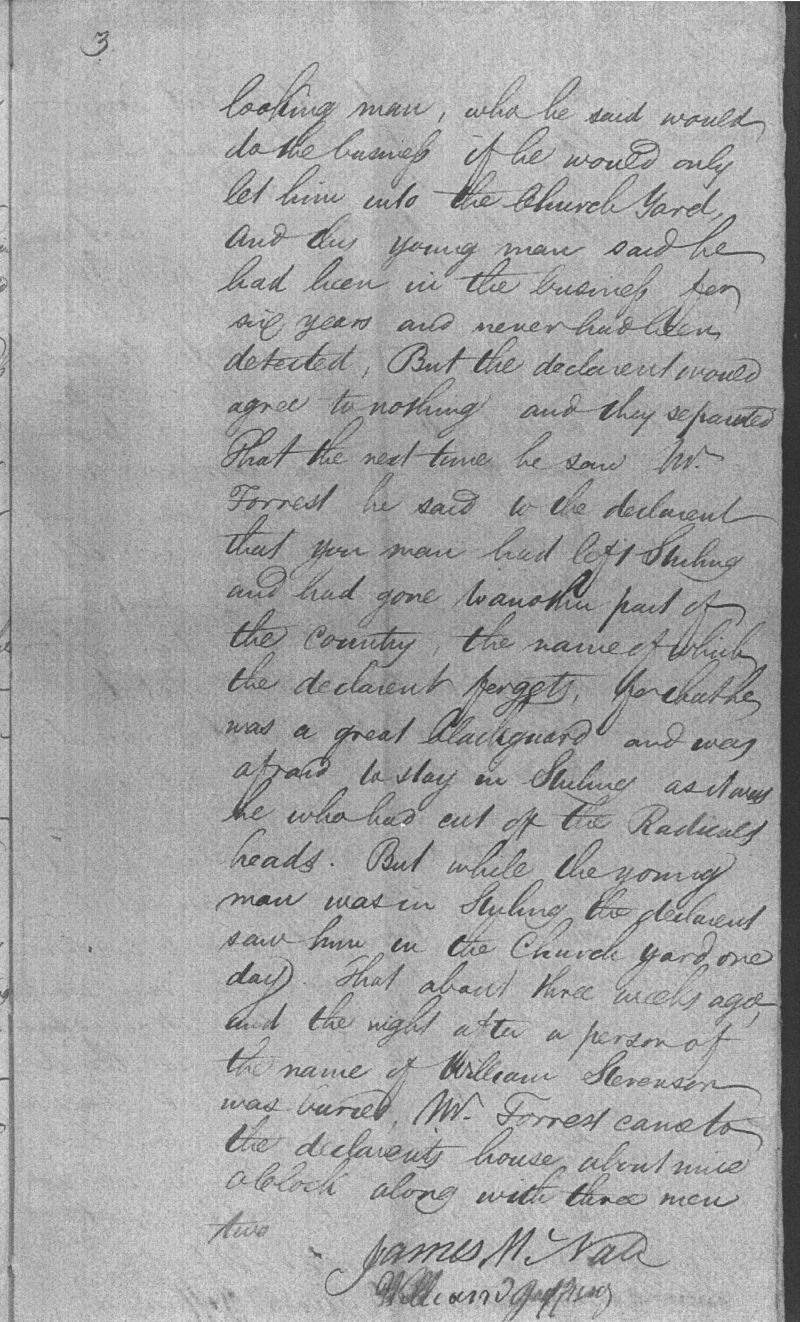 3
looking man, who he said would
do the business if he would only
let him into the Church Yard,
and this young man said he
had been in the business for
six years and never had been
detected, But the declarent would
agree to nothing and they separated
That the next time he saw Mr.
Forrest he said to the declarent
that you man had left Stirling
and had gone to another part of
the Country, the name of which
the declarent forgets, for that he
was a great Blackguard and was
afraid to stay in Stirling as it was
he who had cut off the Radicals
heads. But while the young
man was in Stirling the declarent
saw him in the Church yard one
day. That about three weeks ago,
and the night after a person of
the name of William Stevenson
was buried, Mr. Forrest came to
the declarent's house about nine
oClock along with three men
two
James McNab
William